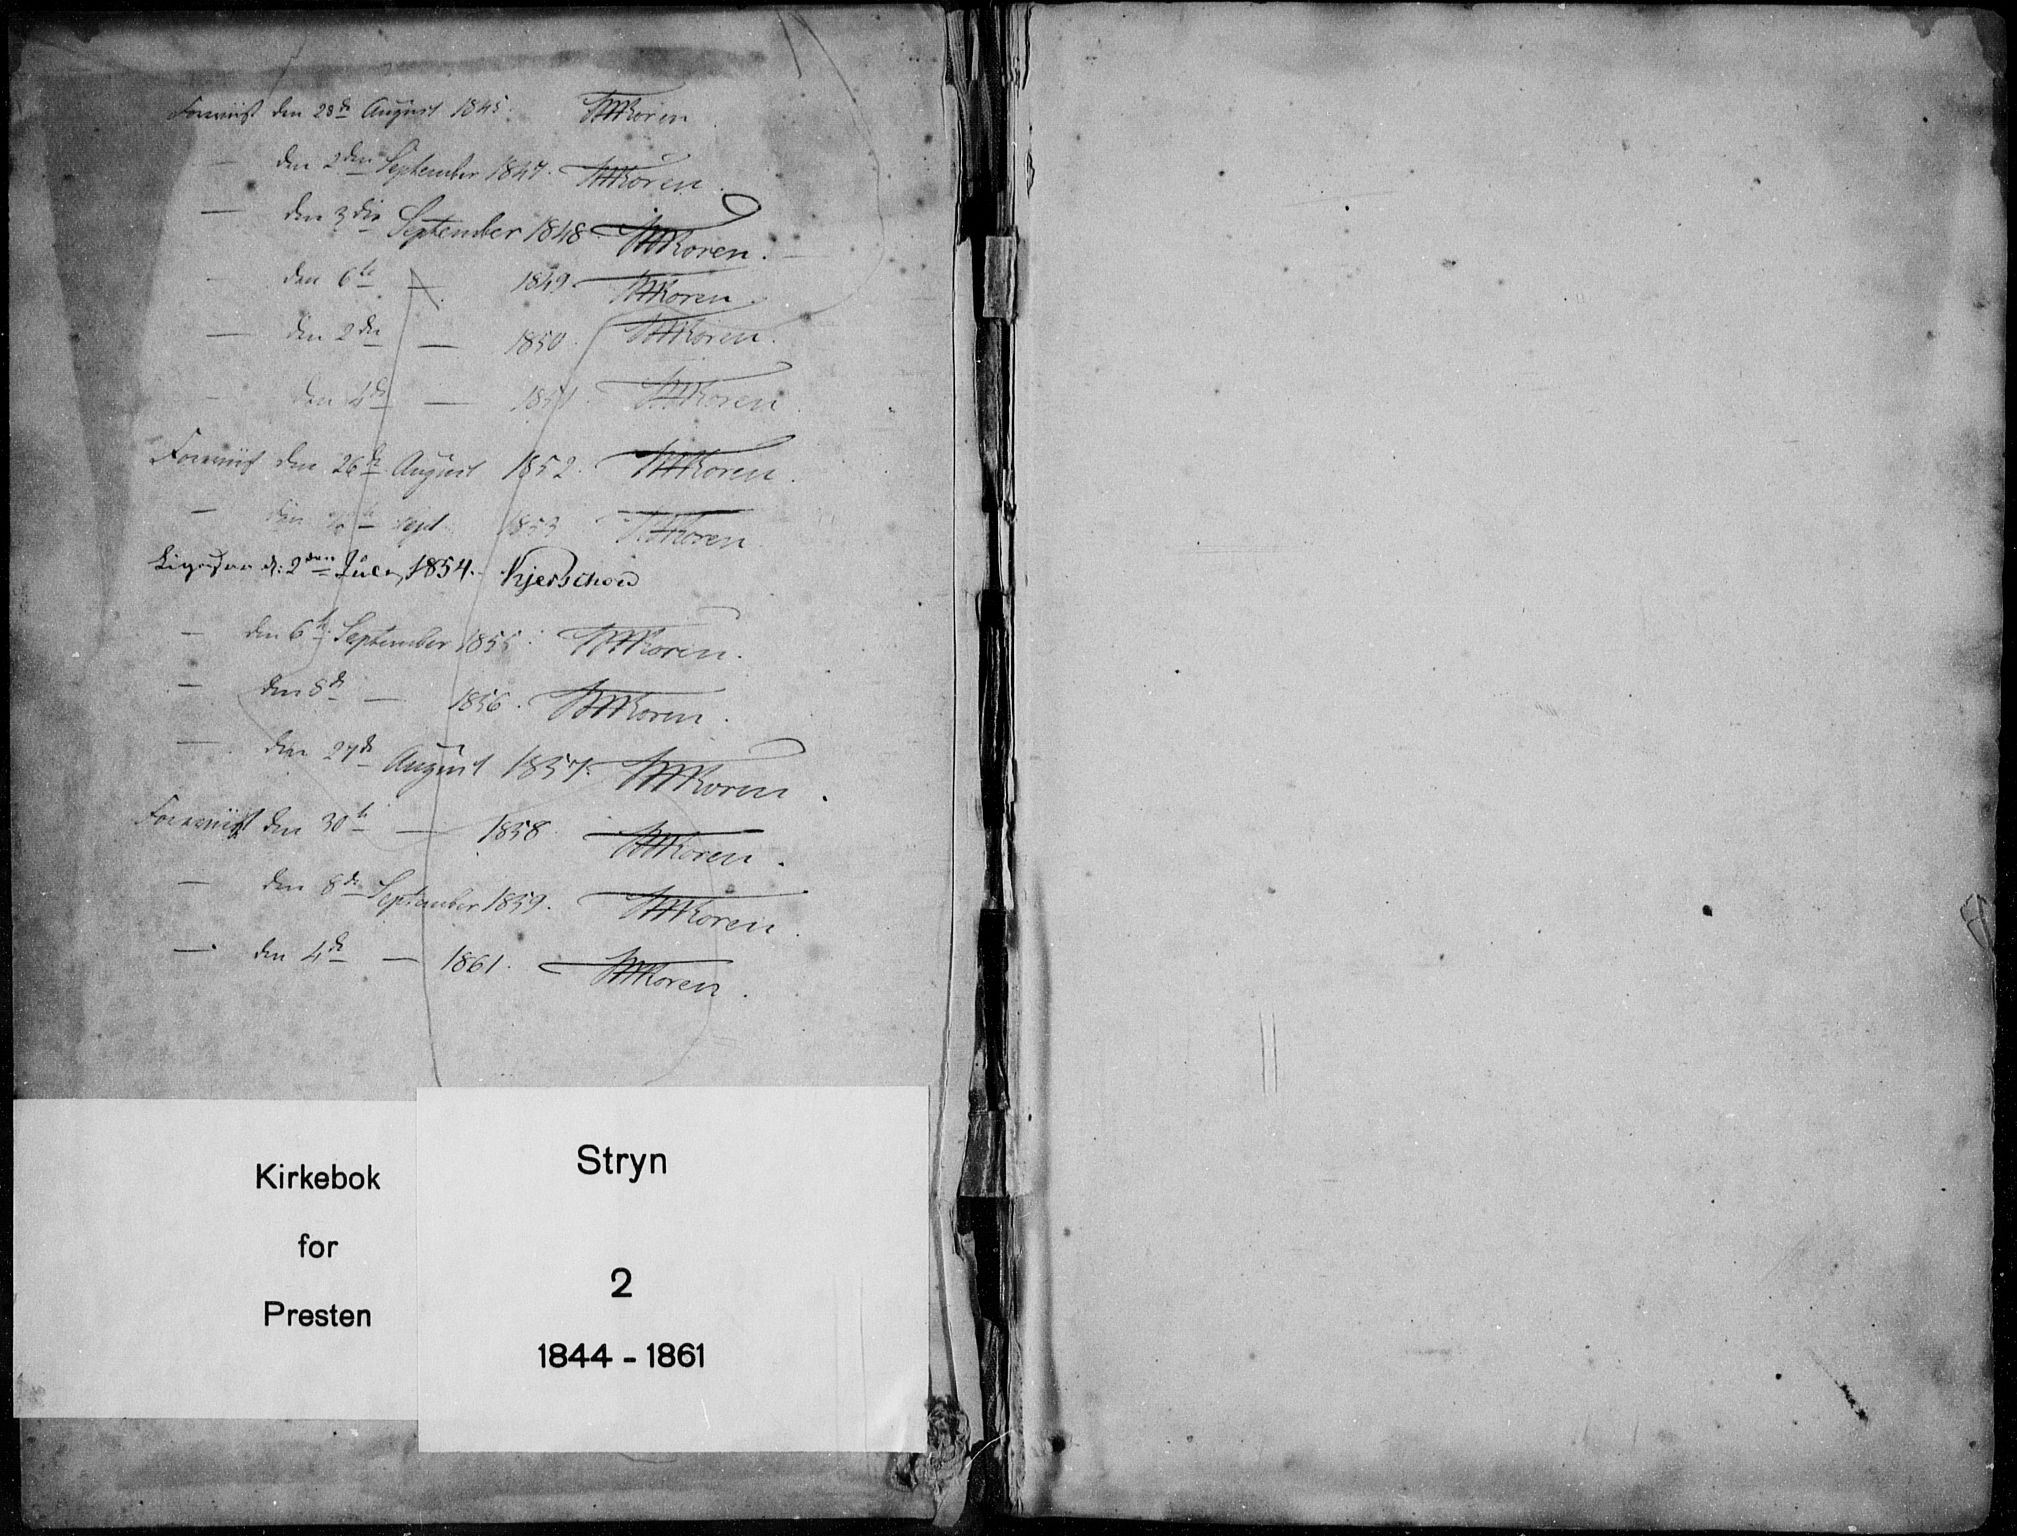 Foreviist den 28de August 1845. WMKoren
— den 2den September 1847. WMKoren.
— den 3die September 1848 WMKoren.
— den 6te — 1849. WMKoren
— den 2den — 1850. WMKoren.
— den 4de — 1851. WMKoren.
Foreviist den 26de August 1852. WMKoren.
— den Sept. 1853 WMKoren.
Ligesaa d: 2den Juli, 1854. Kjerschow
— den 6te September 1855. WMKoren.
— den 8de — 1856. WMKoren.
— den 27de August 1857. WMKoren.
Foreviist den 30te — 1858. WMKoren.
— den 8de September 1859. WMKoren.
— den 4de — 1861. WMKoren.
Kirkebok
for
Presten
Stryn
2
1844 - 1861